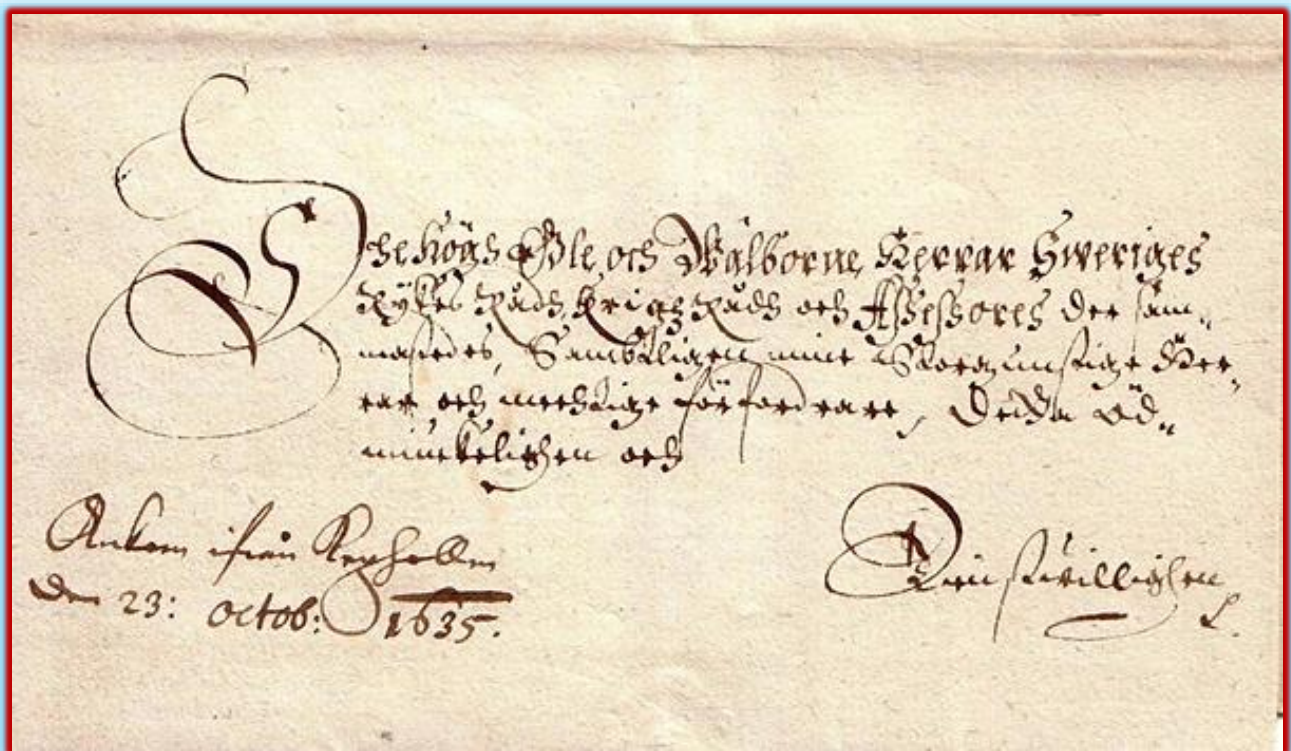 Dhe Högh Edle, och Wälborne, Herrar Sweriges
Rykes Rådh, Krigz Rådh och Assessores der sam„
mastedes, Samptligen mine Storgunstige Her„
rar och mechtige förfordrare, Detta öd„
miuckelighen och
Ankom ifrån Kexholm
den 23: octob: 1635.
Tienstwillighen
L.